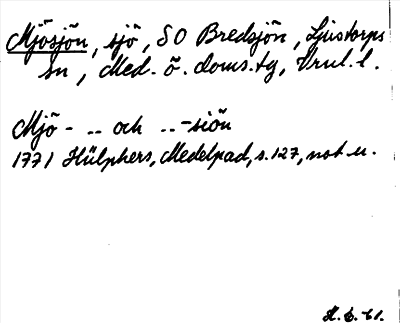 Mjösjön, sjö, SO Bredsjön, Ljustorps
sn, Med. ö. doms.tg, Vrnl. l.
Mjö- .. och ..-siön
1771 Hülphers, Medelpad, s. 127, not u.